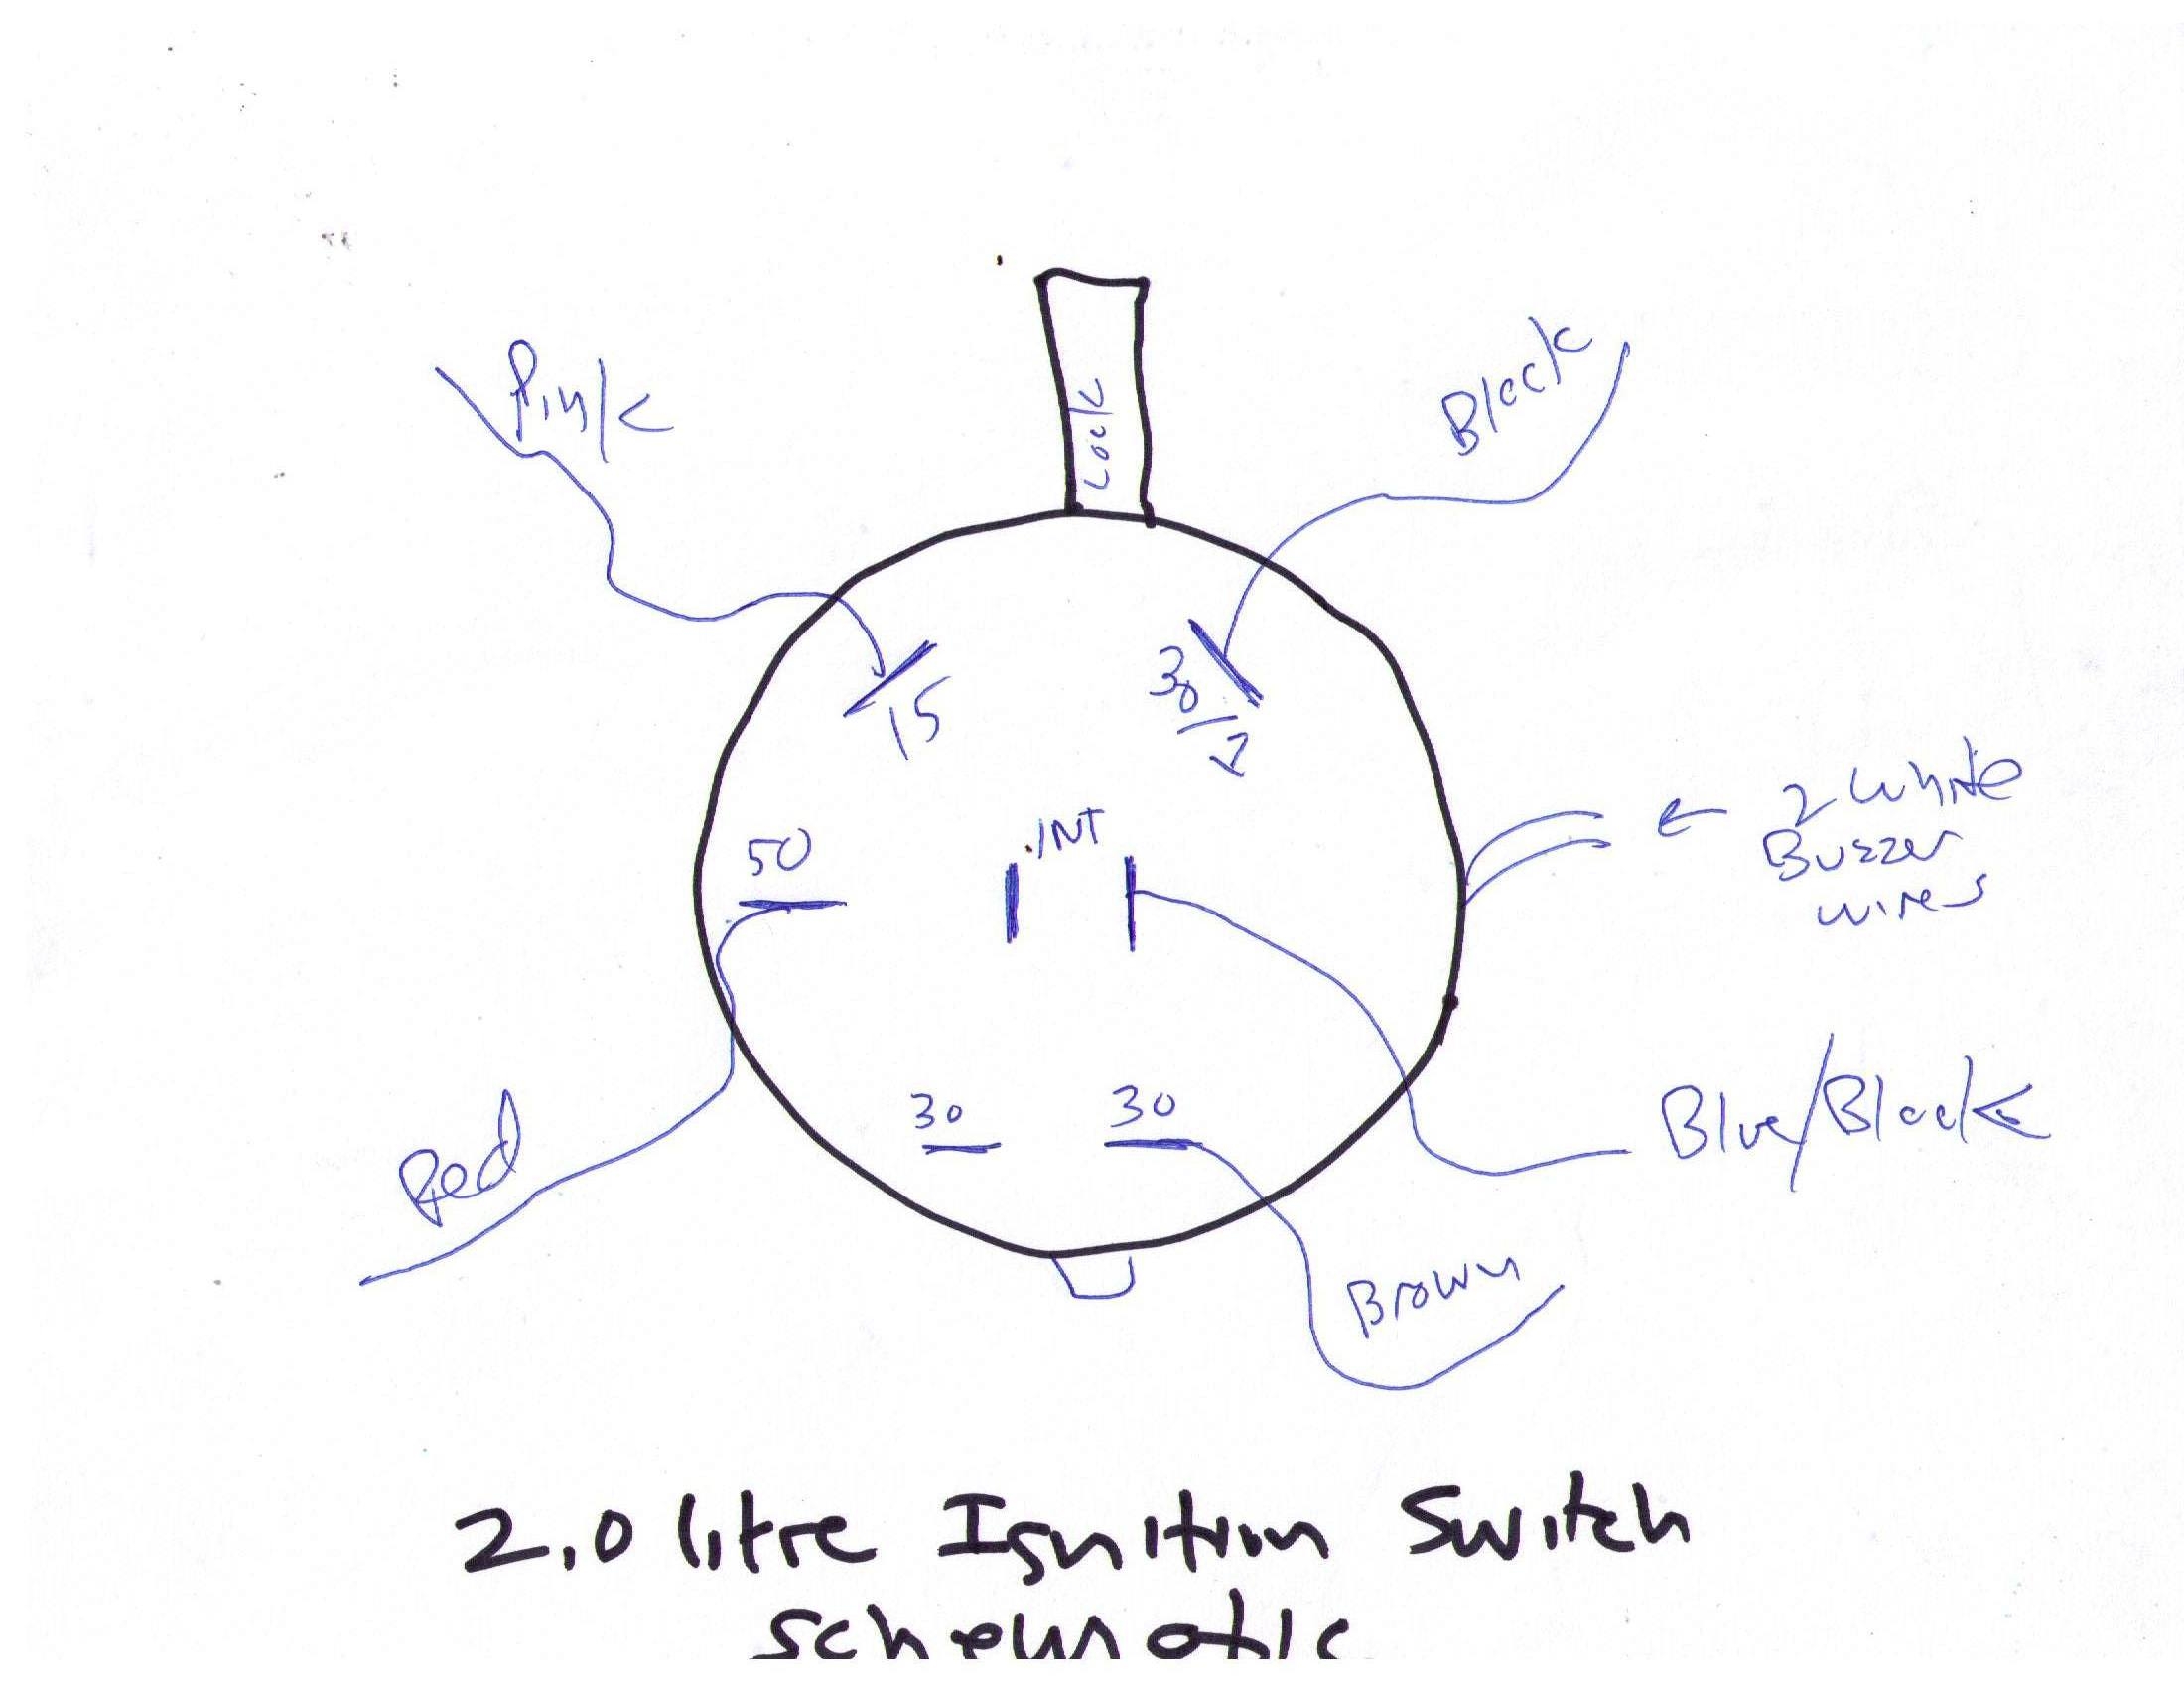 Pink
Black
Lock
15
30/1
50
INT
2 White
Buzzer
wires
30
30
Blue/Black
Red
Brown
2.0 litre Ignition Switch
Schematic